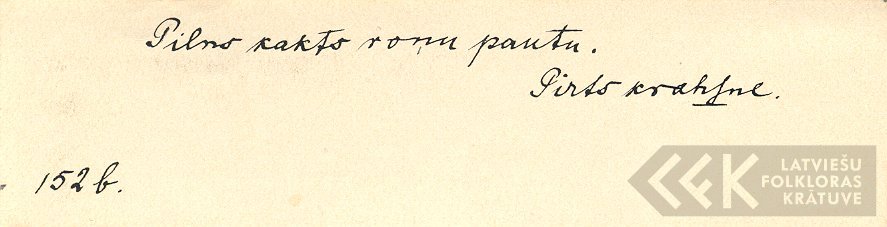 Pilns kakts roņu pautu.
Pirts krahsne.
152 b.
LATVIEŠU
FOLKLORAS
KRĀTUVE